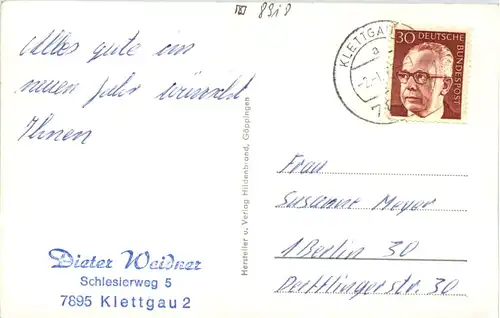 Alles gute im
neuen Jahr wünscht
Ihnen
Dieter Weidner
Schlesierweg 5
7895 Klettgau 2
Hersteller u. Verlag Hildenbrand, Göppingen
KLETTGAU
a
30 DEUTSCHE
BUNDESPOST
Frau
Susanne Meyer
1 Berlin 30
Derfflingerstr. 30